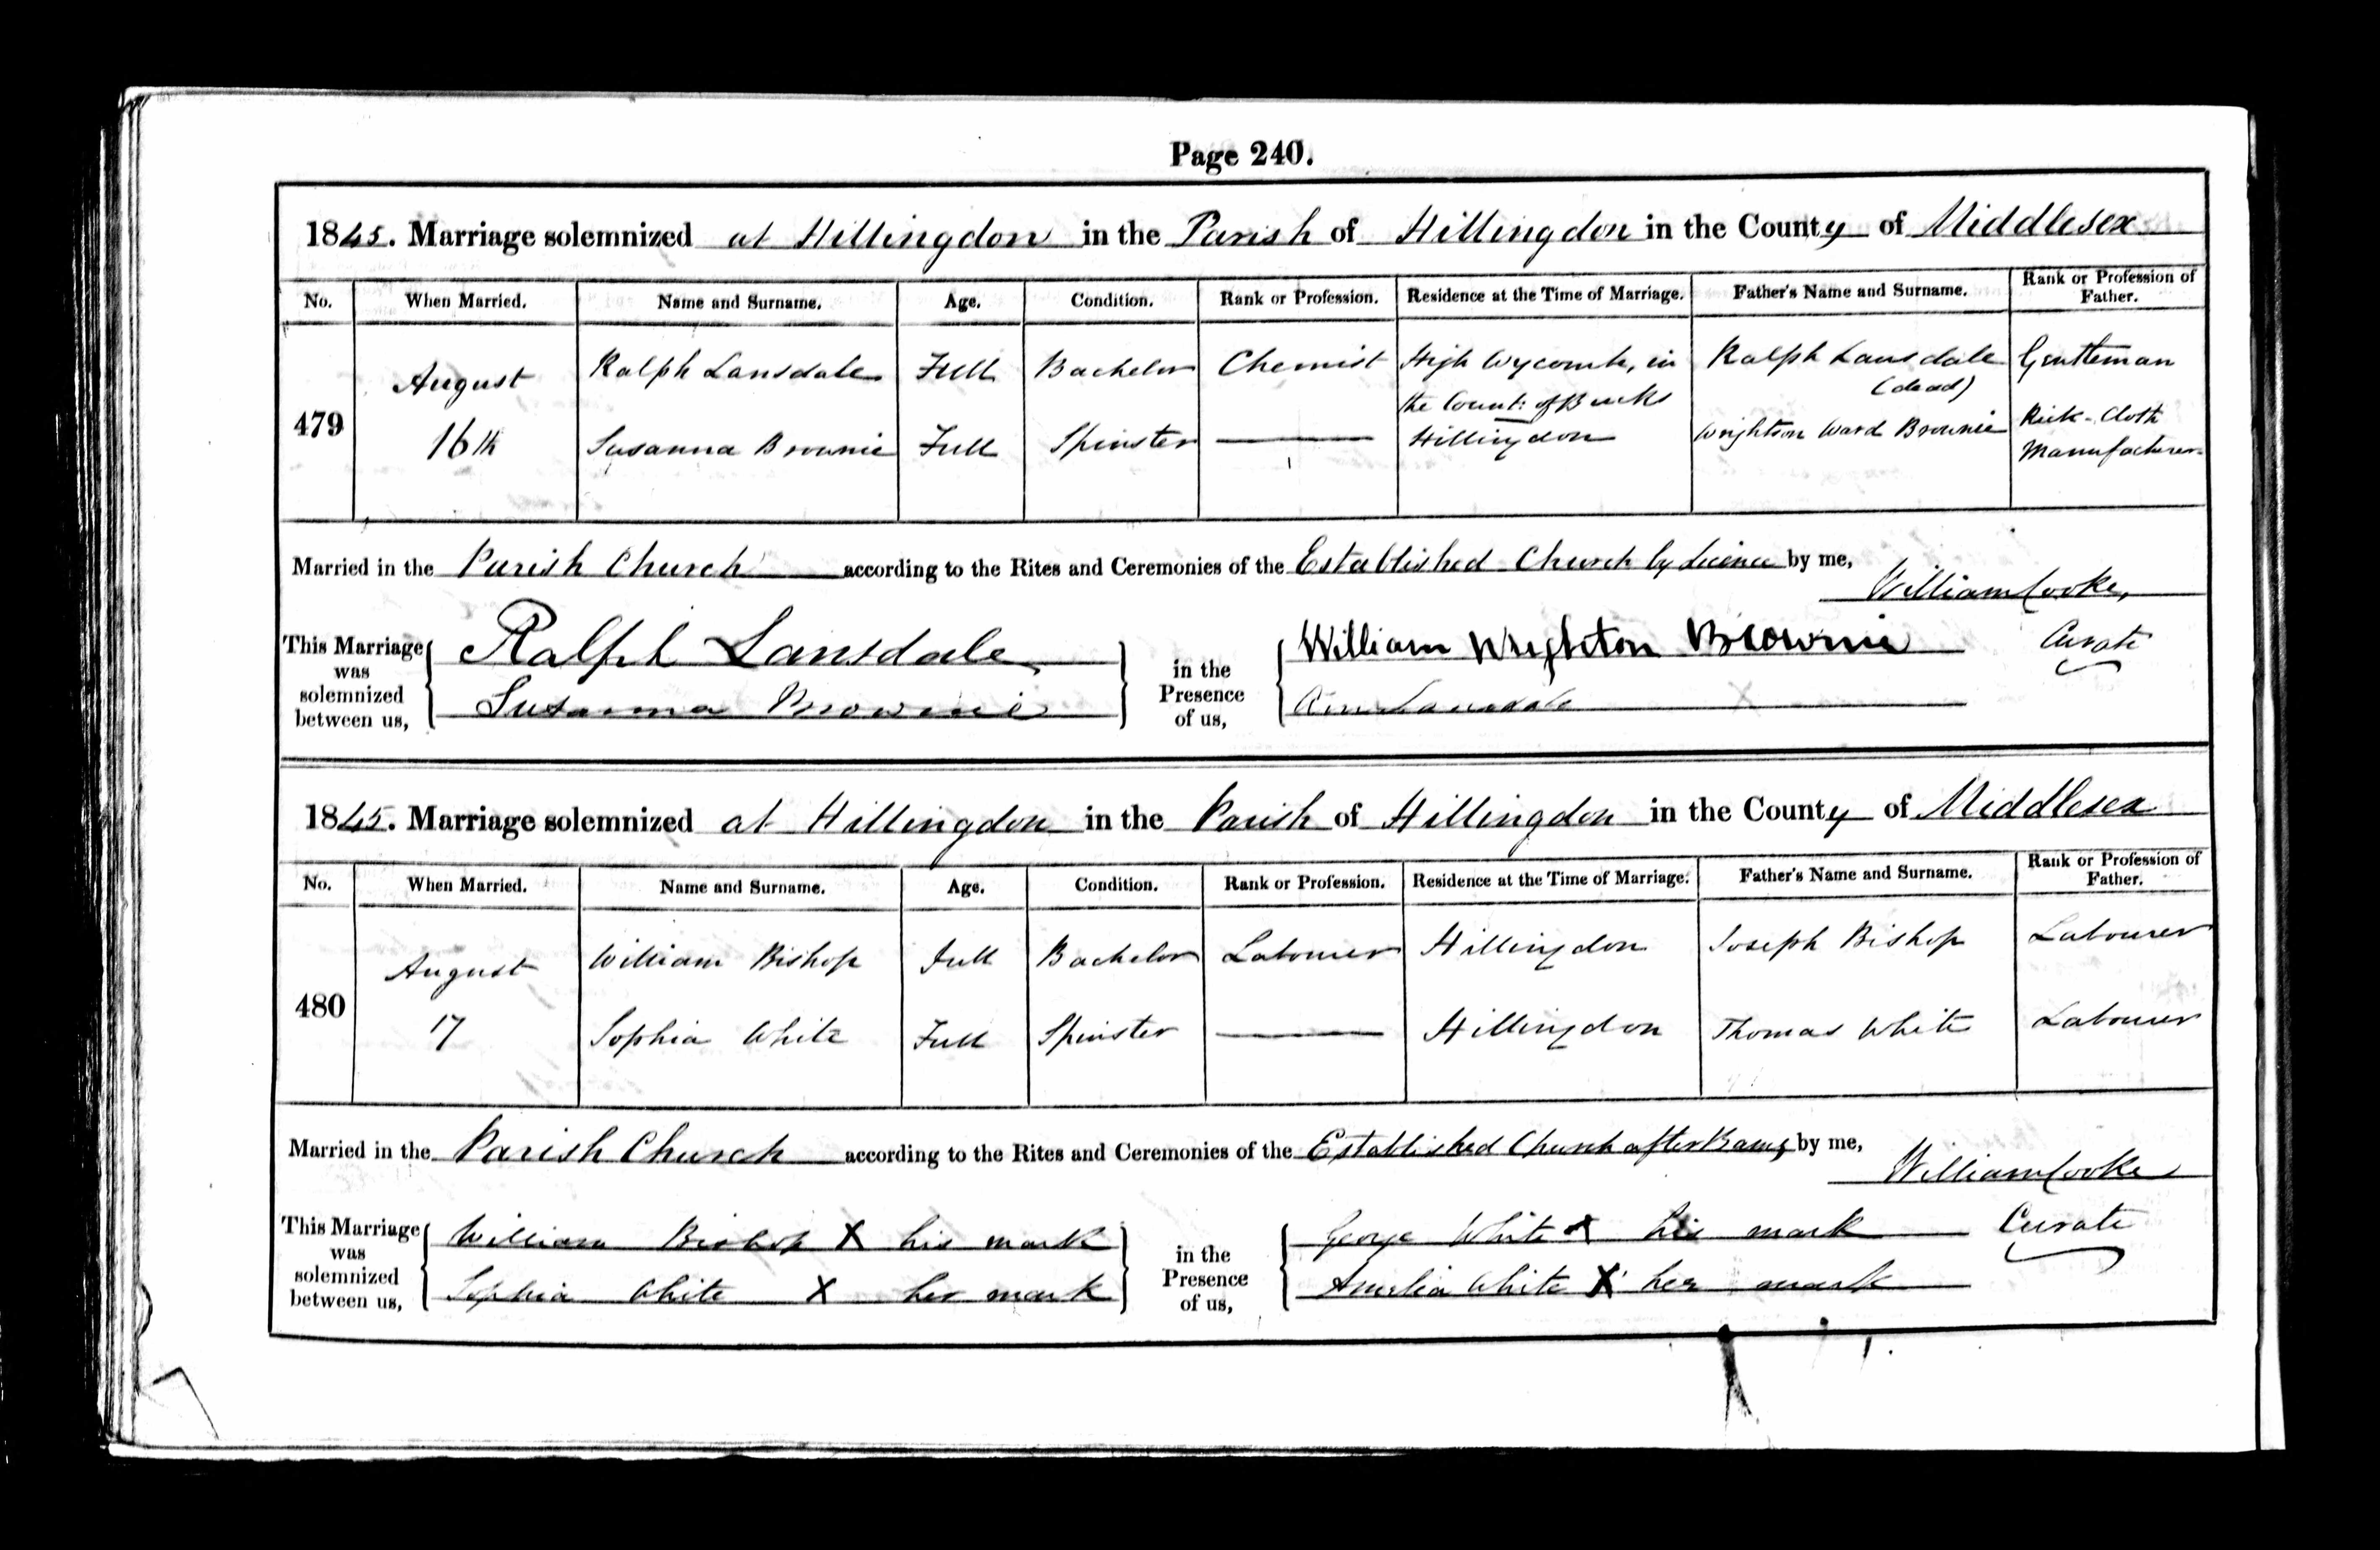 Page 240.
1845. Marriage solemnized at Hillingdon in the Parish of Hillingdon in the County of Middlesex
No. When Married. Name and Surname. Age. Condition. Rank or Profession. Residence at the Time of Marriage. Father's Name and Surname. Rank or Profession of Father.
479 August 16th
Ralph Lansdale Full Bachelor Chemist High Wycombe, in the Count: of Bucks Ralph Lansdale (dead) Gentleman
Susanna Brownie Full Spinster Hillingdon Wrighton Ward Brownie Rick-Cloth Manufacturer
Married in the Parish Church according to the Rites and Ceremonies of the Established Church by Licence by me,
William Cooke,
Curate
This Marriage was solemnized between us,
Ralph Lansdale
Susanna Brownie
in the Presence of us,
William Wrighton Brownie
Ann Lansdale
1845. Marriage solemnized at Hillingdon in the Parish of Hillingdon in the County of Middlesex
No. When Married. Name and Surname. Age. Condition. Rank or Profession. Residence at the Time of Marriage. Father's Name and Surname. Rank or Profession of Father.
480 August 17
William Bishop Full Bachelor Labourer Hillingdon Joseph Bishop Labourer
Sophia White Full Spinster Hillingdon Thomas White Labourer
Married in the Parish Church according to the Rites and Ceremonies of the Established Church after Banns by me,
William Cooke
Curate
This Marriage was solemnized between us,
William Bishop X his mark
Sophia White X her mark
in the Presence of us,
George White X his mark
Amelia White X her mark